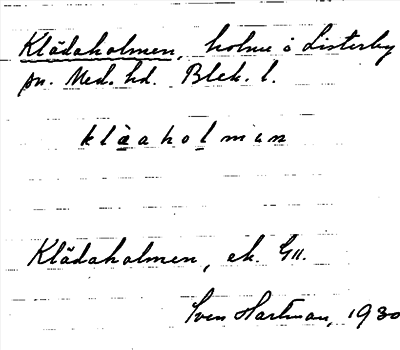 Klådaholmen, holme å Listerby
sn. Med. hd. Blek. l.
klàaholmən
Klådaholmen, ek. G11.
Sven Hartman, 1930